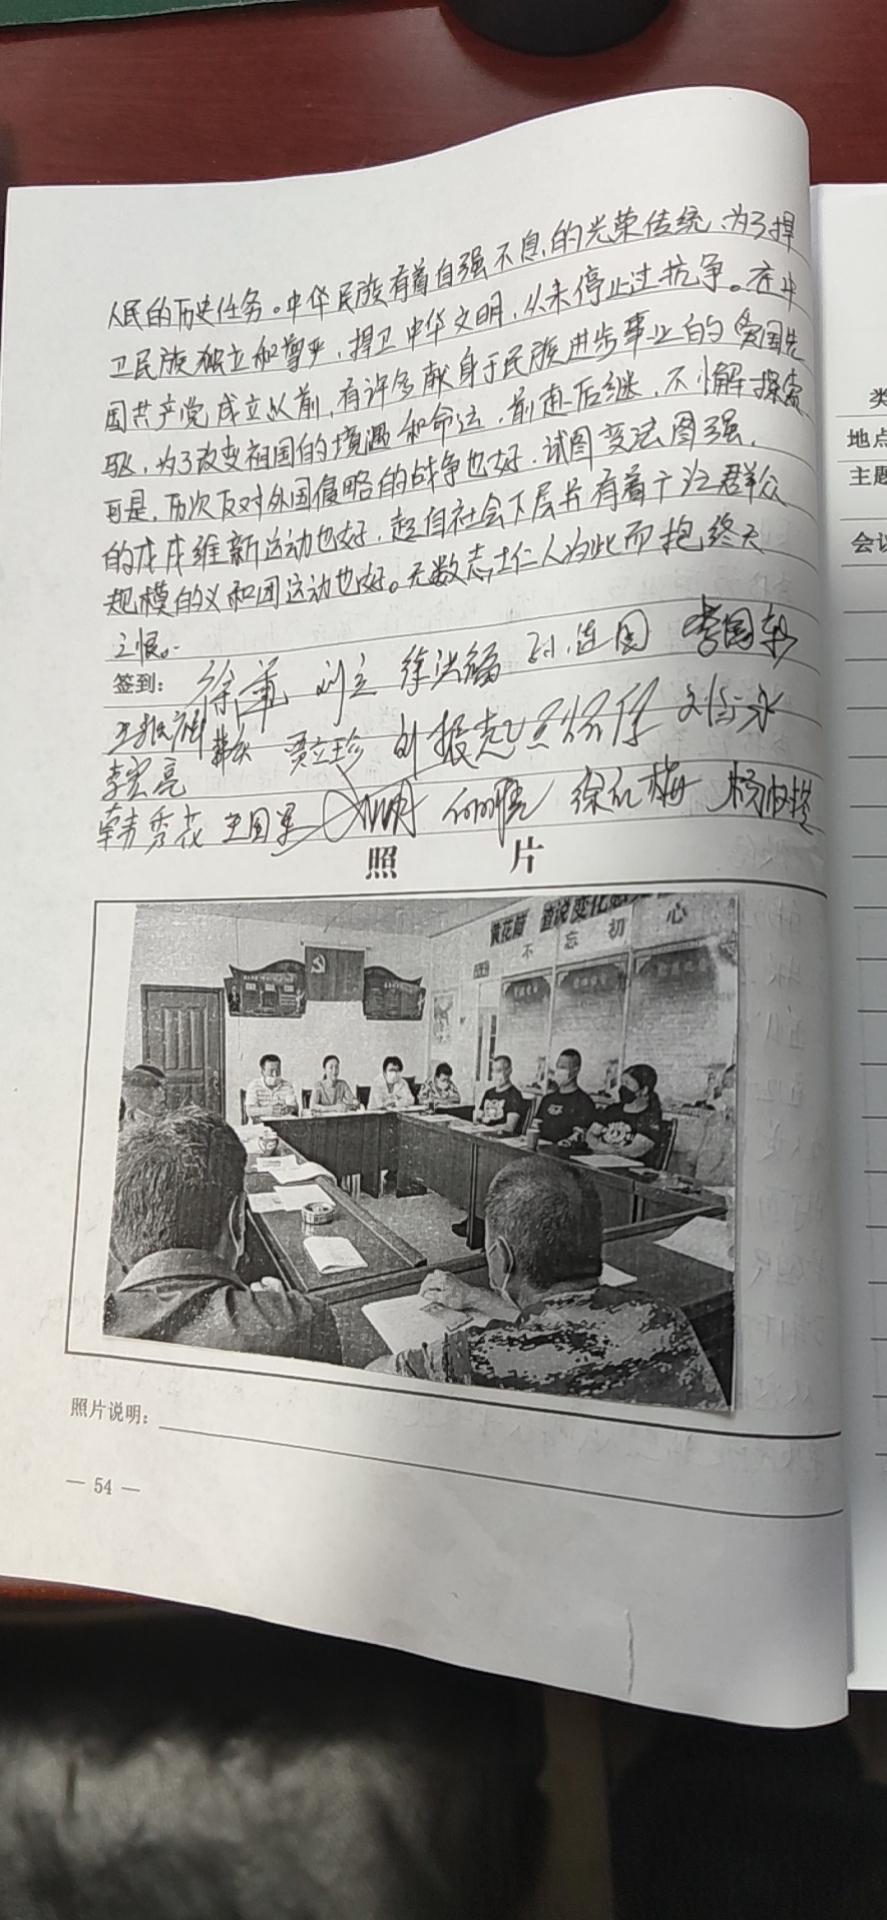 人民的历史任务。中华民族有着自强不息的光荣传统,为了捍
卫民族独立和尊严,捍卫中华文明,从未停止过抗争。在中
国共产党成立以前,有许多献身于民族进步事业的爱国先
驱,为了改变祖国的境遇和命运,前赴后继,不懈探索
可是,历次反对外国侵略的战争也好,试图变法图强,
的戊戌维新运动也好,起自社会下层并有着广泛群众
规模的义和团运动也好。无数志士仁人为此而抱终天
之恨。
签到: 刘立 徐洪福 连国 李国
贾立珍 刘振志
李宏亮
韩秀花 王国军 徐红梅 杨
照 片
黄花 变化
不忘初心
照片说明:
— 54 —
类
地点
主题
会议